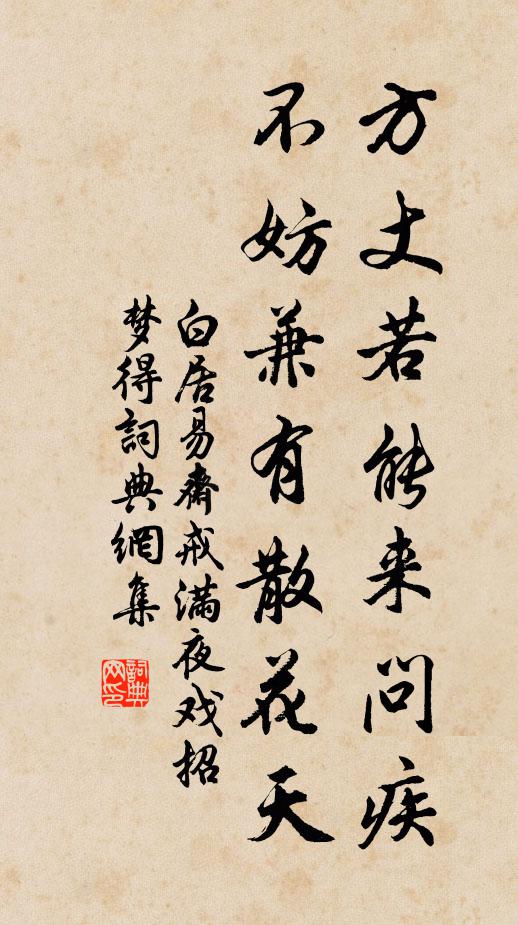 方丈若能来问疾
不妨兼有散花天
白居易齋戒满夜戏招
梦得詞典網集
詞典网印